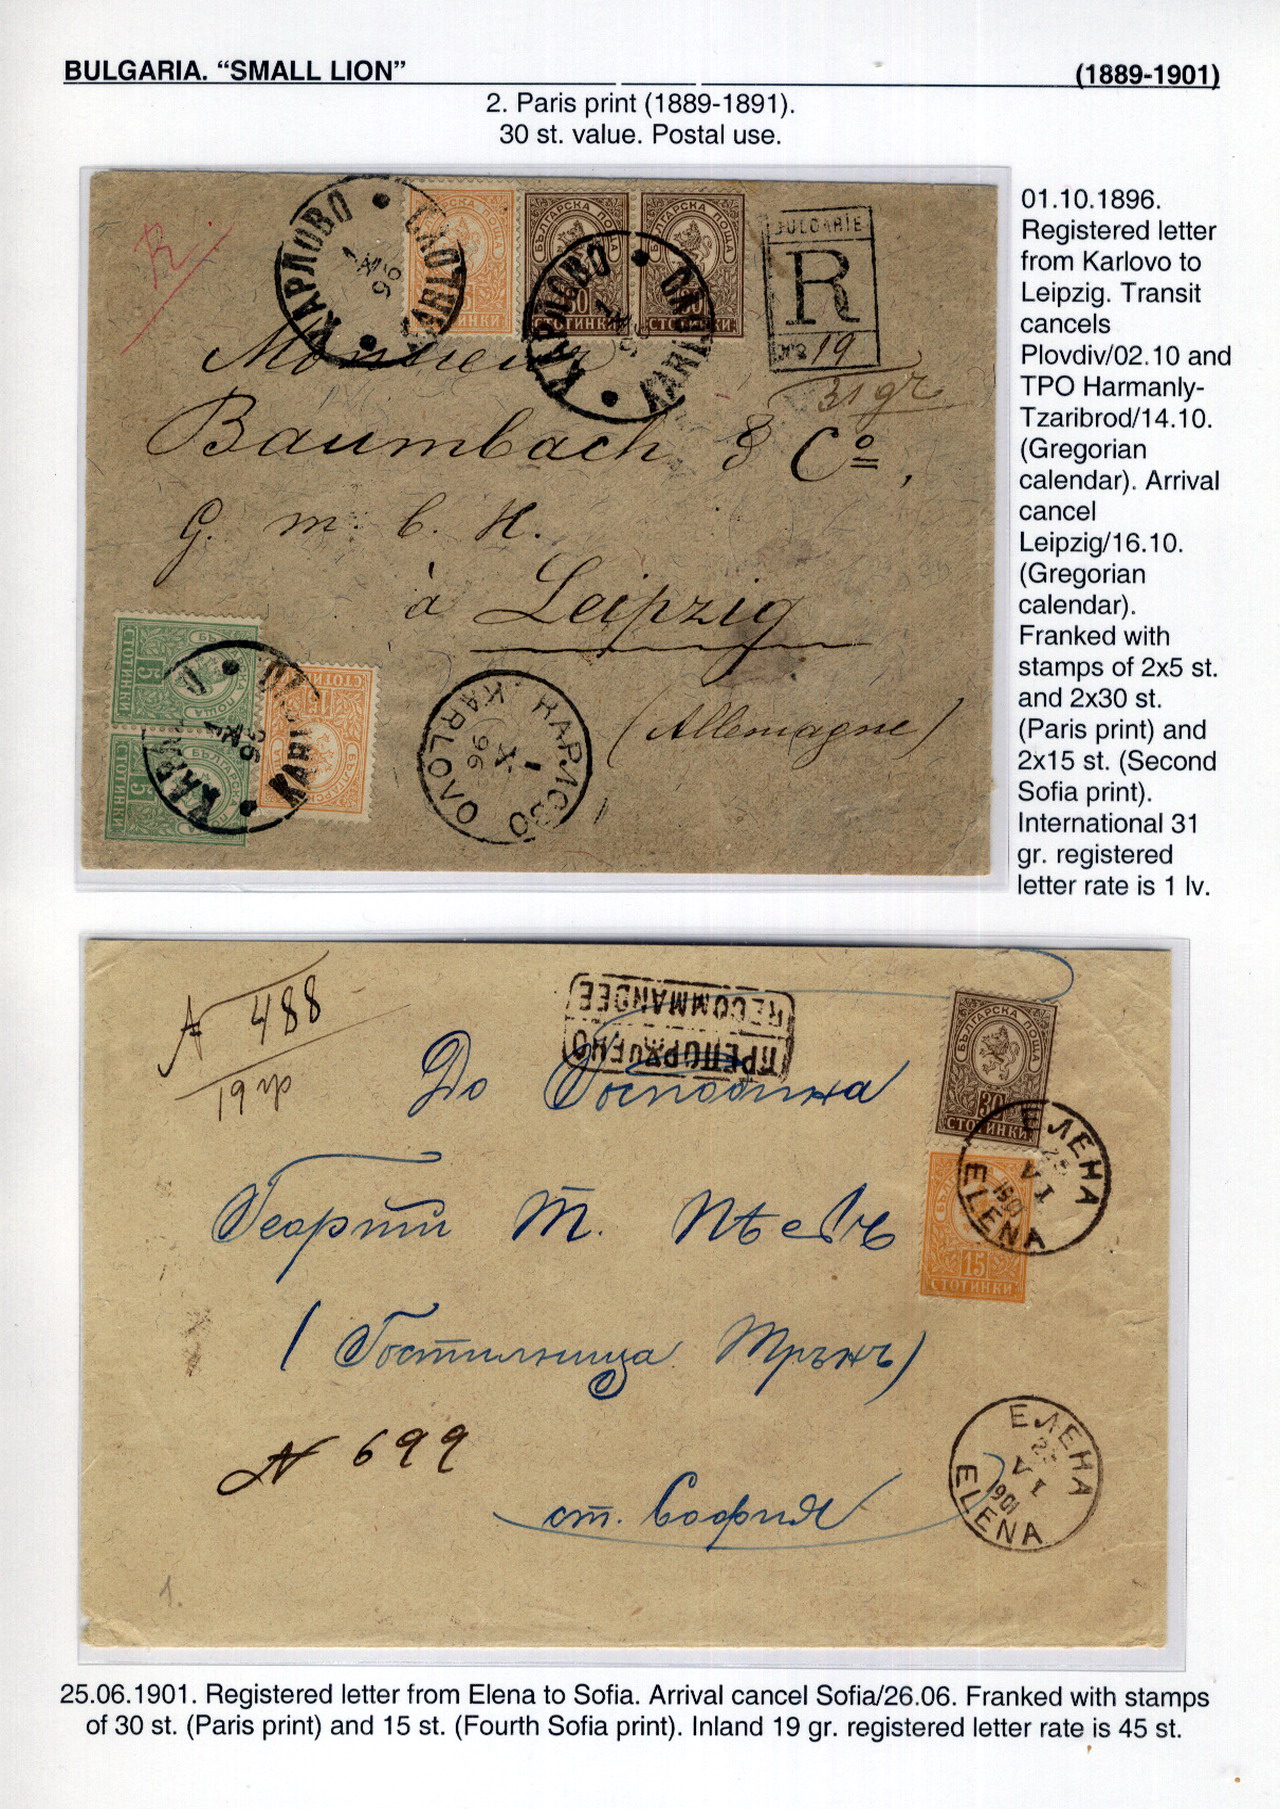 BULGARIA. “SMALL LION”
(1889-1901)
2. Paris print (1889-1891).
30 st. value. Postal use.
01.10.1896.
Registered letter
from Karlovo to
Leipzig. Transit
cancels
Plovdiv/02.10 and
TPO Harmanly-
Tzaribrod/14.10.
(Gregorian
calendar). Arrival
cancel
Leipzig/16.10.
(Gregorian
calendar).
Franked with
stamps of 2x5 st.
and 2x30 st.
(Paris print) and
2x15 st. (Second
Sofia print).
International 31
gr. registered
letter rate is 1 lv.
R.
КАРЛОВО
KARLOVO
BULGARIE
R
No 19
31 gr
БЪЛГАРСКА ПОЩА
30
СТОТИНКИ
БЪЛГАРСКА ПОЩА
30
СТОТИНКИ
КАРЛОВО
KARLOVO
Monsieur
Baumbach & Co,
G. m. b. H.
à Leipzig
(Allemagne)
5
СТОТИНКИ
5
СТОТИНКИ
15
СТОТИНКИ
КАРЛОВО
I
X
96
KARLOVO
№ 488
19 гр
RECOMMANDEE
ПРЕПОРѪЧЕНО
До Господина
Георги Т.
(Гостилница Трънъ)
N 699
ст. София
1.
БЪЛГАРСКА ПОЩА
30
СТОТИНКИ
15
СТОТИНКИ
ЕЛЕНА
VI
1901
ELENA
ЕЛЕНА
VI
1901
ELENA
25.06.1901. Registered letter from Elena to Sofia. Arrival cancel Sofia/26.06. Franked with stamps
of 30 st. (Paris print) and 15 st. (Fourth Sofia print). Inland 19 gr. registered letter rate is 45 st.